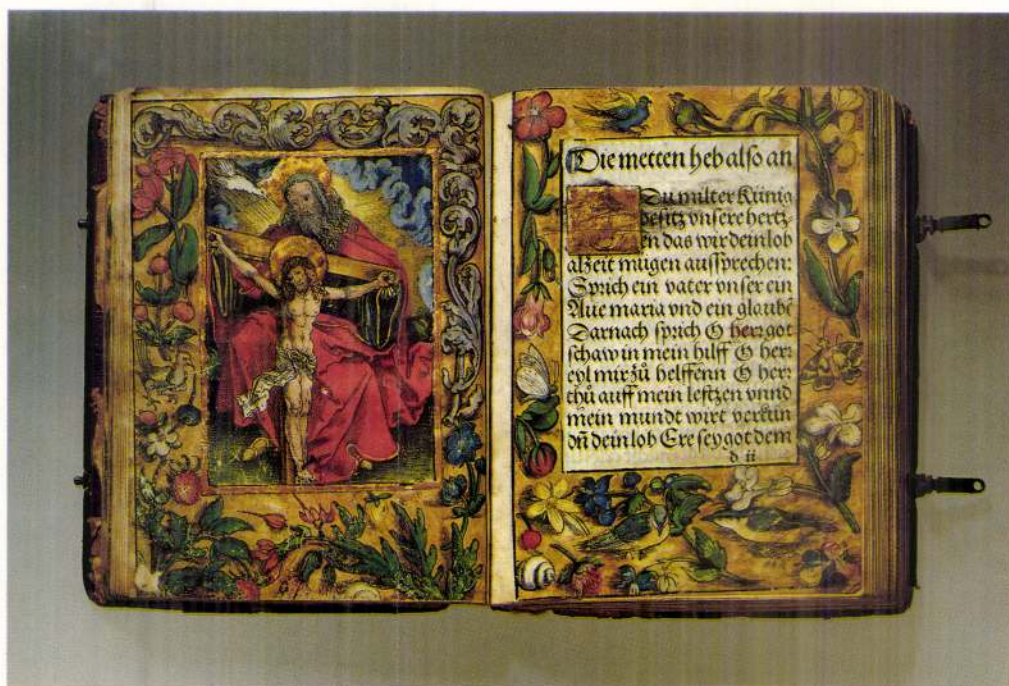 Die metten heb also an
Du milter Künig
besitz vnsere hertz-
en das wir dein lob
alzeit mügen aussprechen:
Sprich ein vater vnser ein
Aue maria vnd ein glaubē
Darnach sprich O herr got
schaw in mein hilff O herr
eyl mir zů helffenn O herr
thů auff mein lefftzen vnnd
mein mundt wirt verkün
dñ dein lob Ere sey got dem
d ii